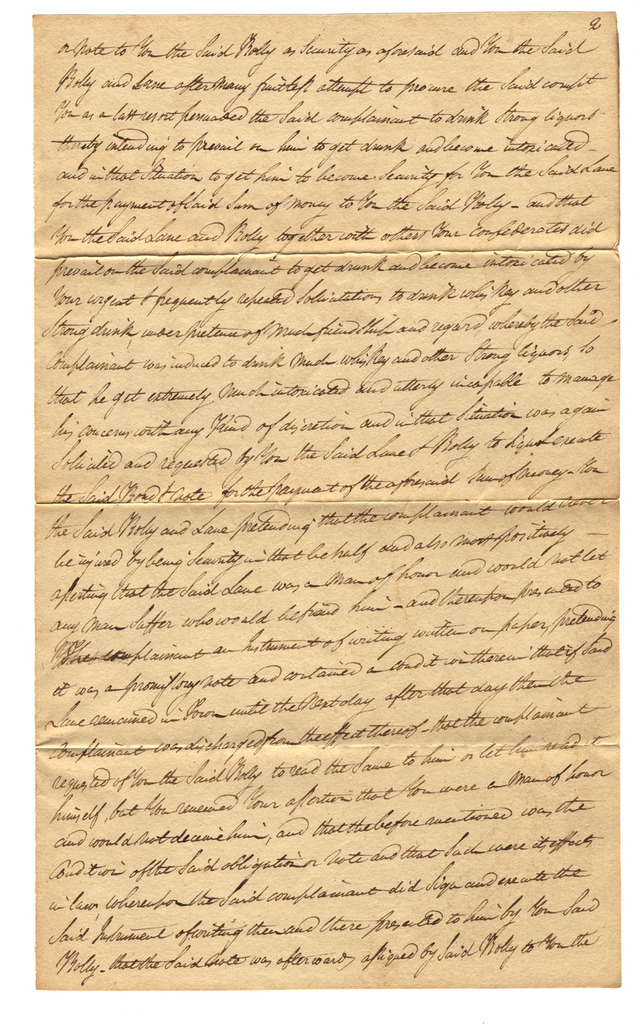 2
or Note to You the Said Rolly as Security as aforesaid and You the Said
Rolly and Lane after many fruitless attempt to procure the Said complt
You as a last resort persuaded the Said complainant to drink Strong liquors
thereby intending to prevail on him to get drunk and become intoxicated –
and in that Situation to get him to become Security for You the Said Lane
for the payment of Said Sum of money to You the Said Rolly – and that
You the Said Lane and Rolly together with others Your confederates did
prevail on the Said complainant to get drunk and become intoxicated by
Your urgent & frequently repeated Solicitations to drink whiskey and other
Strong drink under pretence of Much friendship and regard whereby the Said
Complainant was induced to drink Much whiskey and other Strong liquors, So
that he got extremely Much intoxicated and utterly incapable to manage
his concerns with any Kind of discretion and in that Situation was again
Solicited and requested by You the Said Lane & Rolly to Sign & execute
the Said Bond & note for the payment of the aforesaid Sum of money – You
the Said Rolly and Lane pretending that the complainant would never
be injured by being Security in that behalf and also most positively –
asserting that the Said Lane was a Man of honor and would not let
any Man Suffer who would befriend him – and thereupon presented to
complainant an Instrument of writing written on paper, pretending
it was a promissory note and contained a condition therein that if Said
Lane remained in Town until the Next day after that day then the
Complainant was discharged from the effect thereof – that the complainant
requested of You the Said Rolly to read the Same to him or let him read it
himself, but You renewed Your assertion that You were a Man of honor
and would not deceive him, and that the before mentioned was the
Condition of the Said obligation or Note and that Such were its effects
in law whereupon the Said complainant did Sign and execute the
Said Instrument of writing then and there presented to him by You Said
Rolly – that the Said note was afterwards assigned by Said Rolly to You the